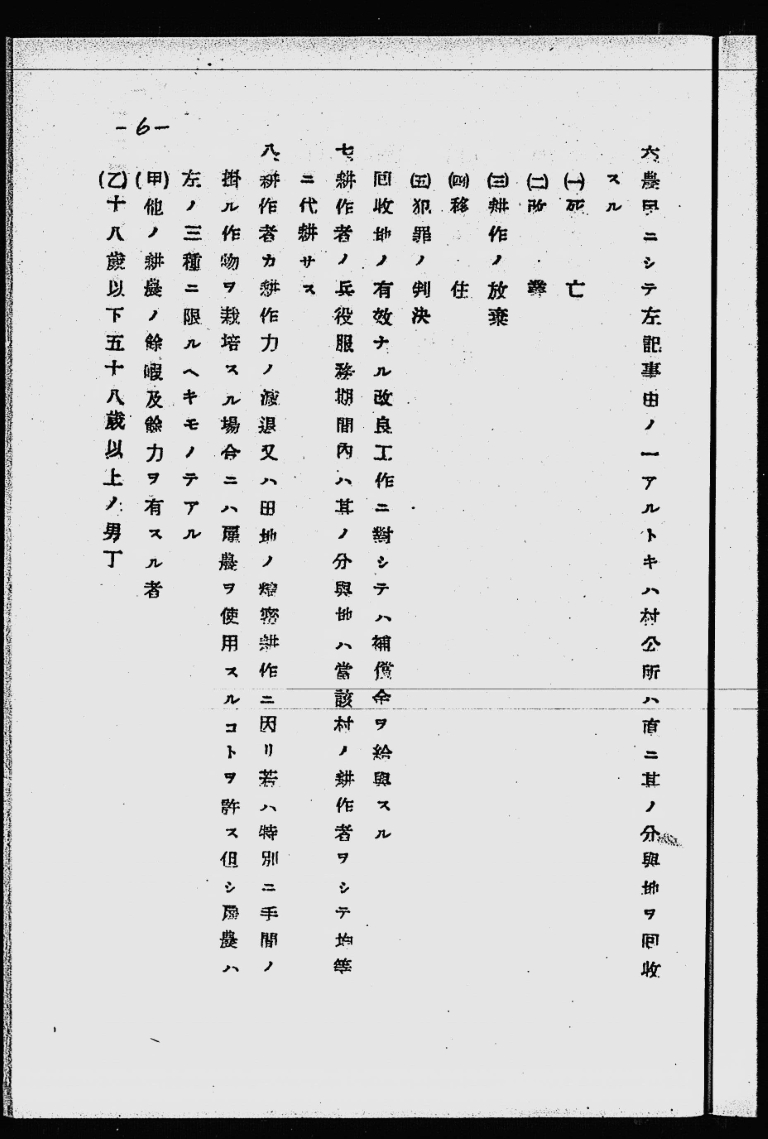 -6-
六、農民ニシテ左記事由ノ一アルトキハ村公所ハ直ニ其ノ分與地ヲ回收
スル
(一)死亡
(二)改業
(三)耕作ノ放棄
(四)移住
(五)犯罪ノ判決
回收地ノ有效ナル改良工作ニ對シテハ補償金ヲ給與スル
七、耕作者ノ兵役服務期間內ハ其ノ分與地ハ當該村ノ耕作者ヲシテ均等
ニ代耕サス
八、耕作者カ耕作力ノ減退又ハ田地ノ精密耕作ニ因リ若ハ特別ニ手間ノ
掛ル作物ヲ栽培スル場合ニハ雇農ヲ使用スルコトヲ許ス但シ雇農ハ
左ノ三種ニ限ルヘキモノテアル
(甲)他ノ耕農ノ餘暇及餘力ヲ有スル者
(乙)十八歲以下五十八歲以上ノ男丁